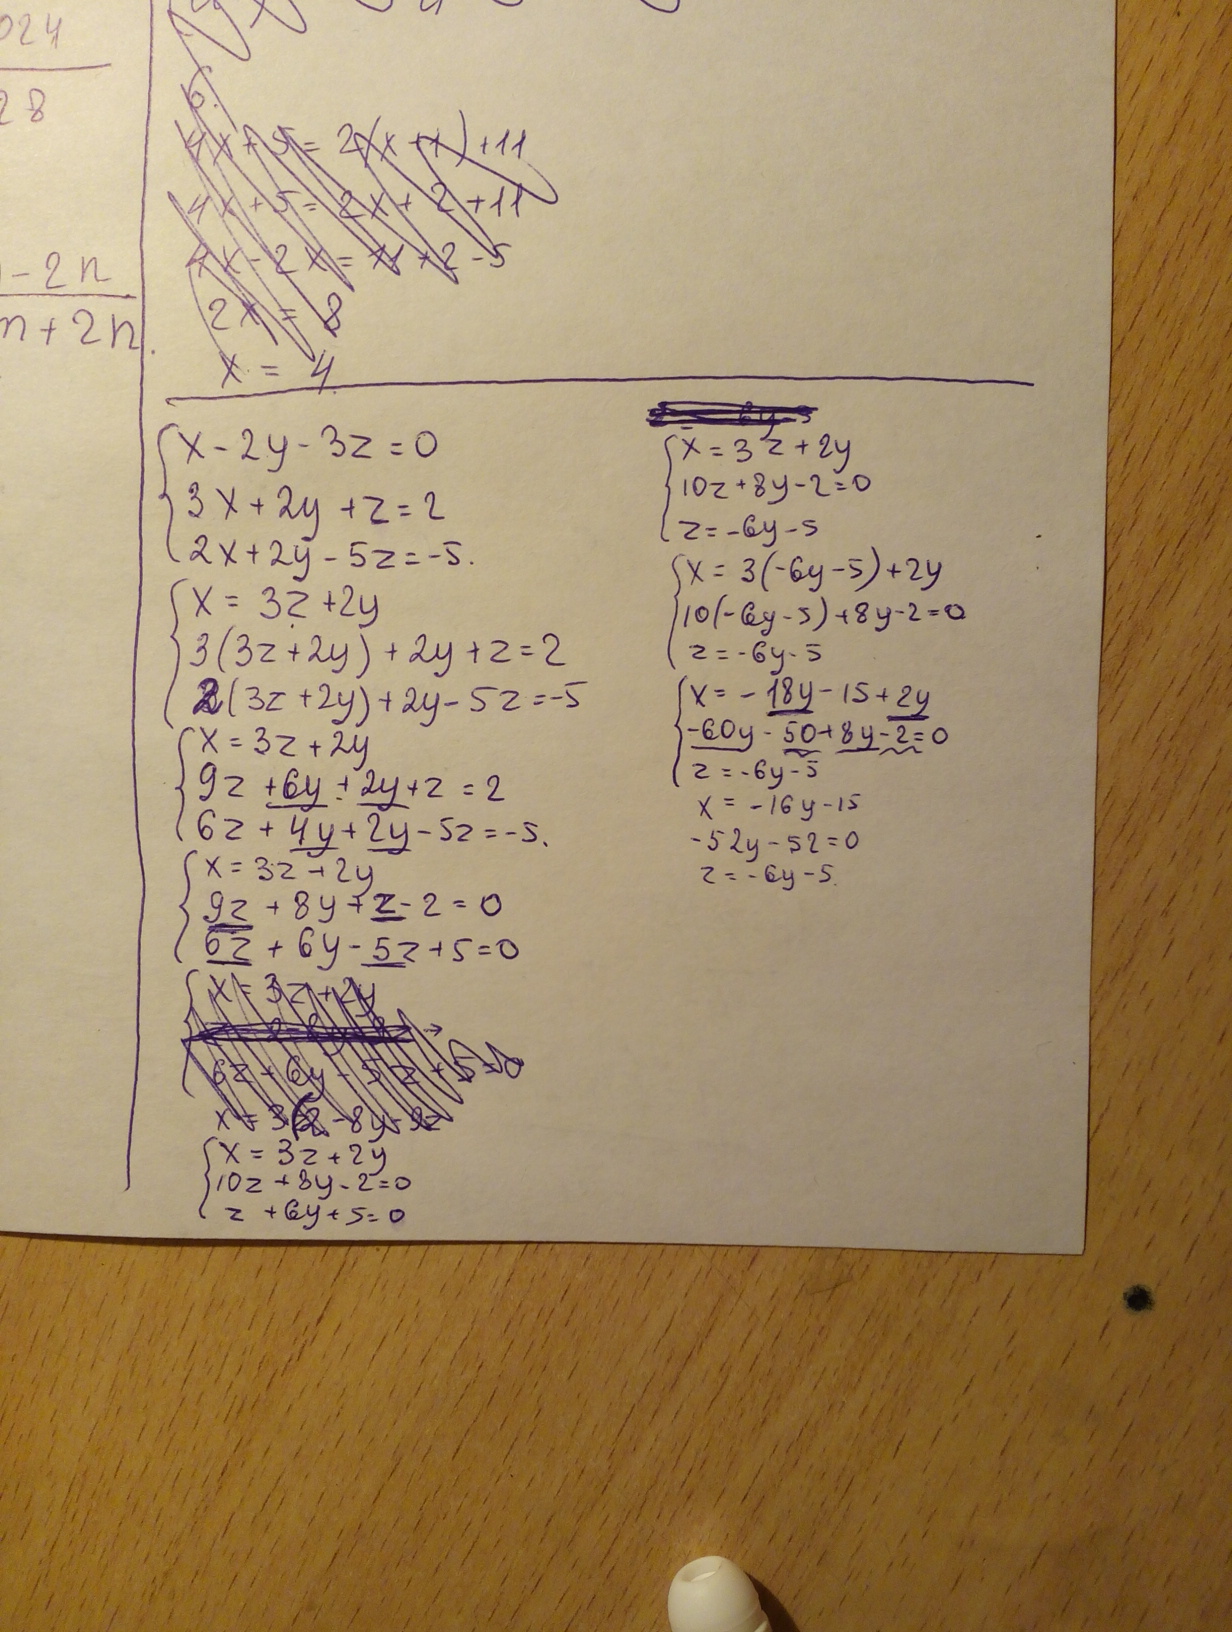 024
28
- 2n
m + 2n
6.
4x + 5 = 2(x + 1) + 11
4x + 5 = 2x + 2 + 11
4x - 2x = 11 + 2 - 5
2x = 8
x = 4
x - 2y - 3z = 0
3x + 2y + z = 2
2x + 2y - 5z = -5.
x = 3z + 2y
3(3z + 2y) + 2y + z = 2
2(3z + 2y) + 2y - 5z = -5
x = 3z + 2y
9z + 6y + 2y + z = 2
6z + 4y + 2y - 5z = -5.
x = 3z + 2y
9z + 8y + z - 2 = 0
6z + 6y - 5z + 5 = 0
x = 3z + 2y
6z + 6y - 5z + 5 = 0
x = 3(2 - 8y - 9z
x = 3z + 2y
10z + 8y - 2 = 0
z + 6y + 5 = 0
6y - 5
x = 3z + 2y
10z + 8y - 2 = 0
z = -6y - 5
x = 3(-6y - 5) + 2y
10(-6y - 5) + 8y - 2 = 0
z = -6y - 5
x = -18y - 15 + 2y
-60y - 50 + 8y - 2 = 0
z = -6y - 5
x = -16y - 15
-52y - 52 = 0
z = -6y - 5.